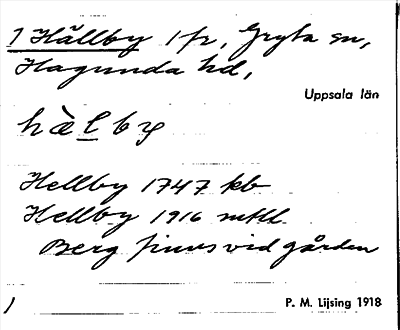 1 Hällby 1 fr, Gryta sn,
Hagunda hd,
Uppsala län
hὲlby
Hellby 1747 kb
Hellby 1916 mtll
Berg finns vid gården
1
P. M. Lijsing 1918